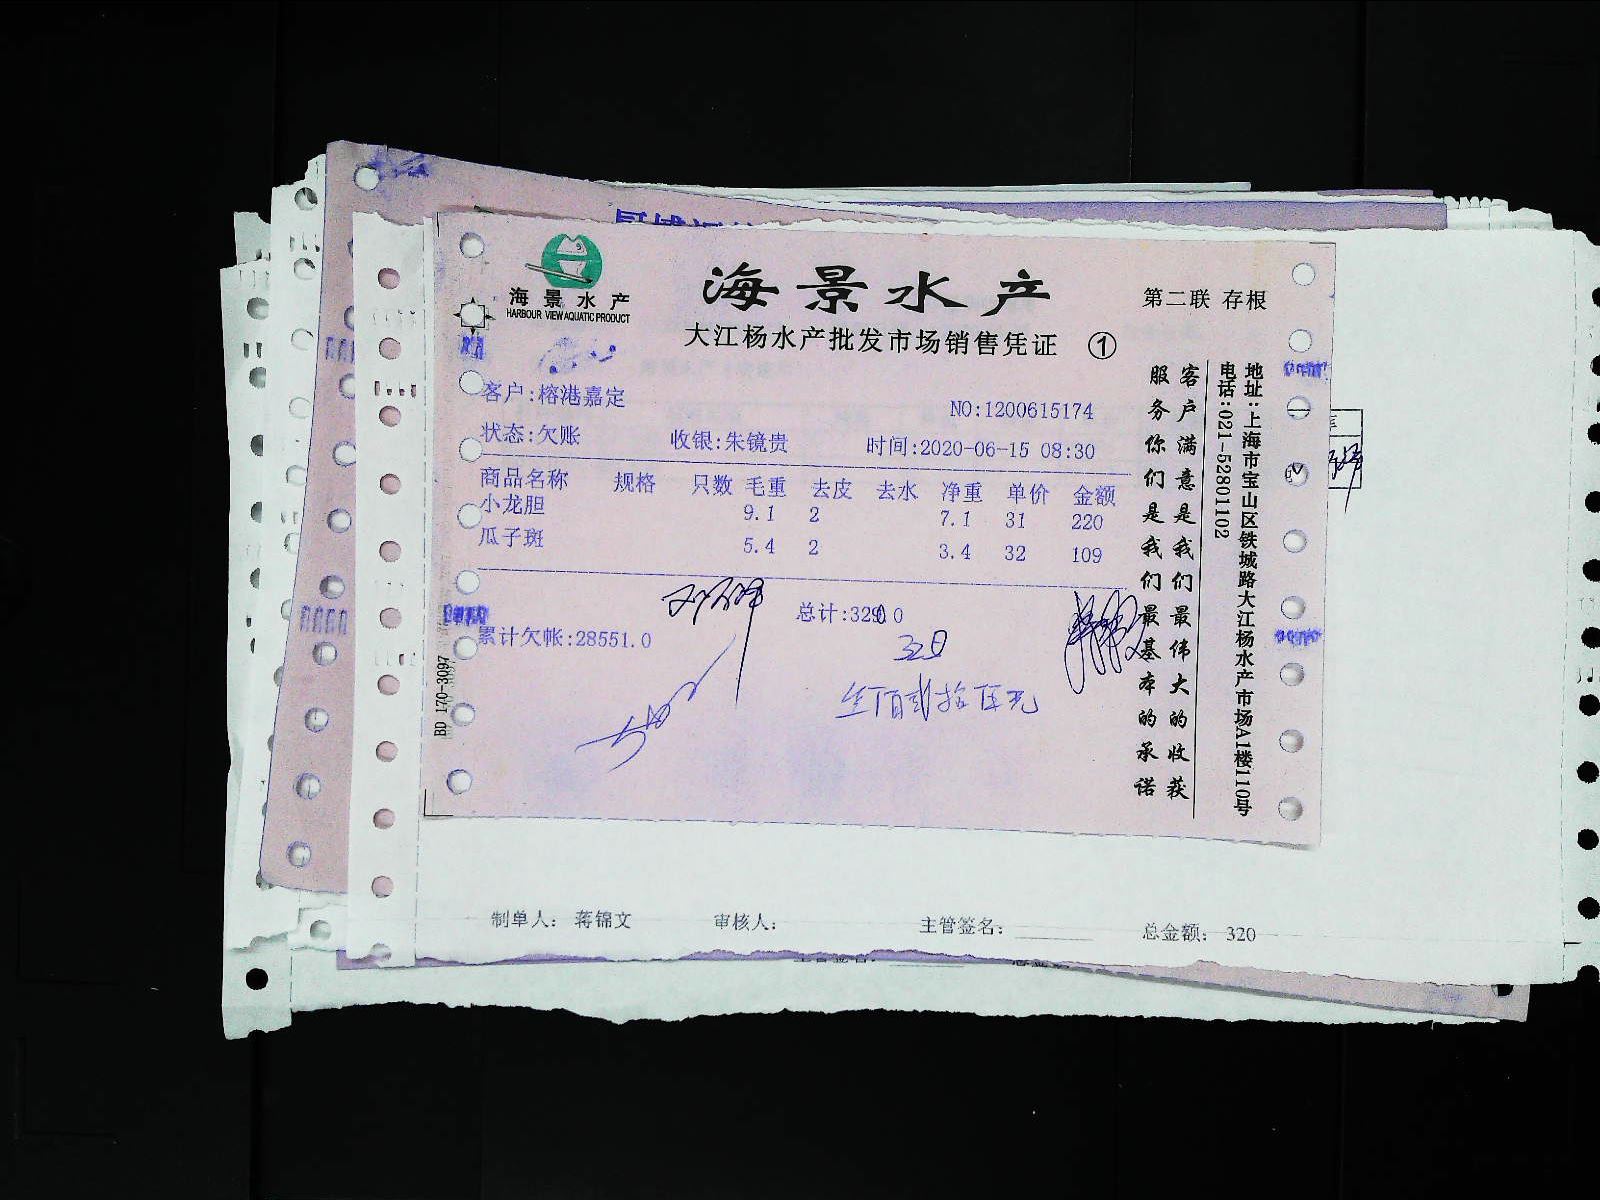 海景水产
HARBOUR VIEW AQUATIC PRODUCT
海景水产
第二联 存根
大江杨水产批发市场销售凭证 ①
客户:榕港嘉定
NO:1200615174
状态:欠账 收银:朱镜贵 时间:2020-06-15 08:30
商品名称 规格 只数 毛重 去皮 去水 净重 单价 金额
小龙胆 9.1 2 7.1 31 220
瓜子斑 5.4 2 3.4 32 109
总计:329.0
累计欠帐:28551.0
BD 170-3097
客户满意是我们最伟大的收获
服务你们是我们最基本的承诺
地址:上海市宝山区铁城路大江杨水产市场A1楼110号
电话:021-52801102
制单人: 蒋锦文 审核人: 主管签名: 总金额: 320